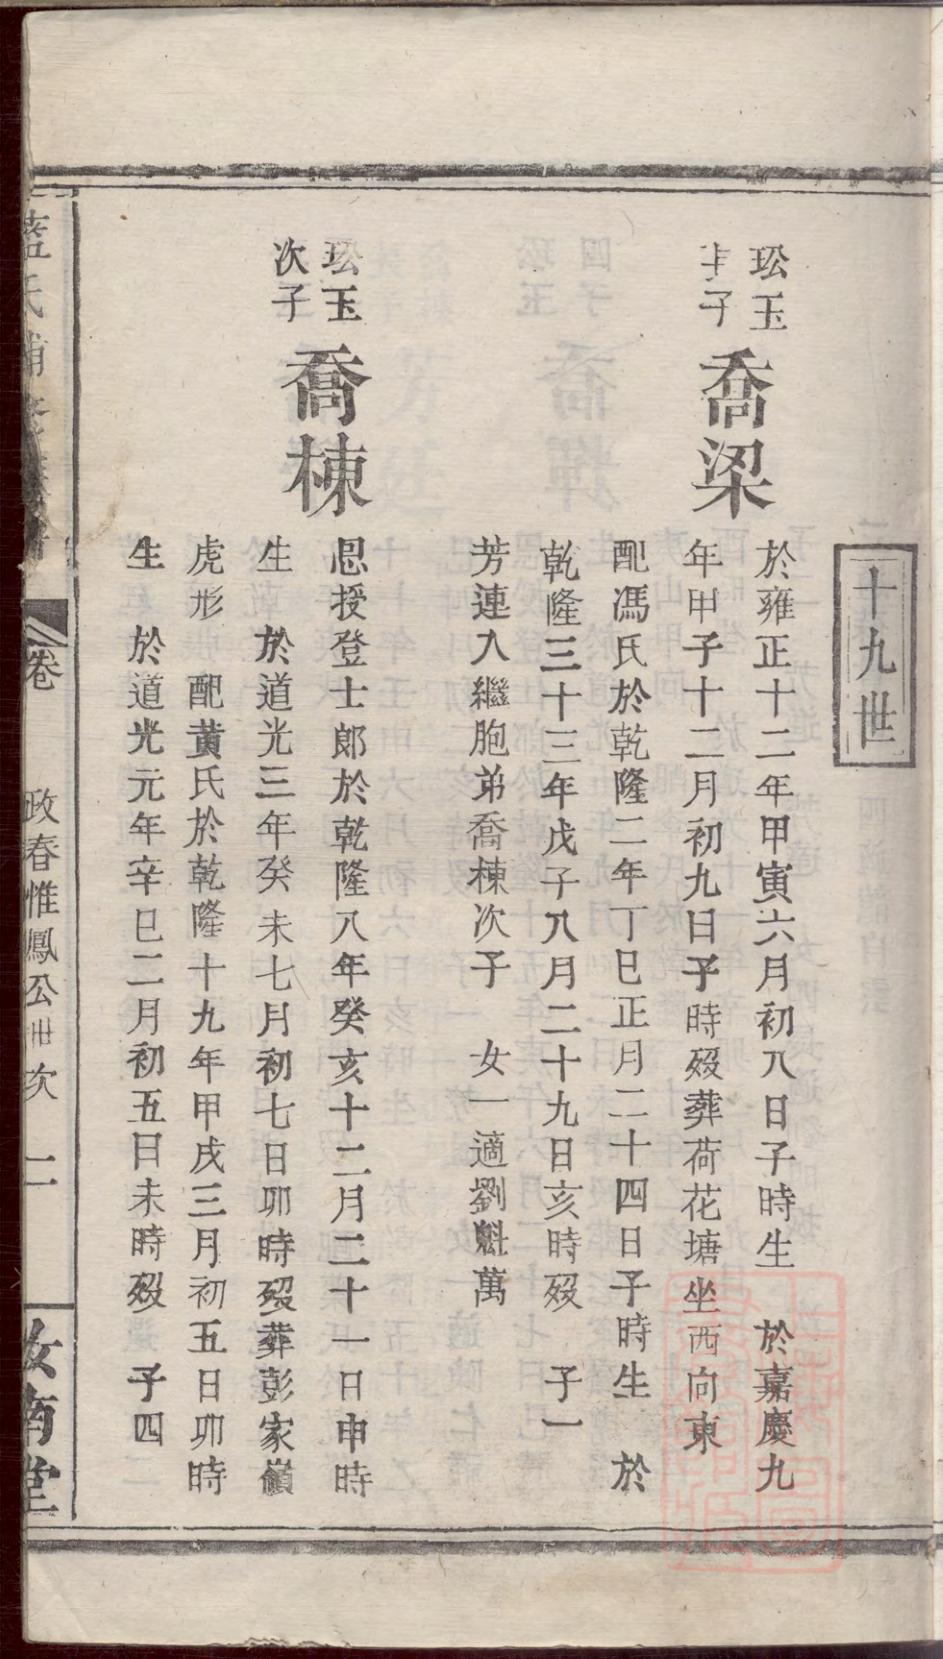 十九世
玜玉
子
喬梁
於雍正十二年甲寅六月初八日子時生　於嘉慶九
年甲子十二月初九日子時歿葬荷花塘坐西向東
配馮氏於乾隆二年丁巳正月二十四日子時生　於
乾隆三十三年戊子八月二十九日亥時歿　子一
芳連入繼胞弟喬棟次子　女一適劉魁萬
玜玉
次子
喬棟
恩授登士郎於乾隆八年癸亥十二月二十一日申時
生　於道光三年癸未七月初七日卯時歿葬彭家嶺
虎形　配黃氏於乾隆十九年甲戌三月初五日卯時
生　於道光元年辛巳二月初五日未時歿　子四
藍氏
卷
政春惟鳳公世次　二
汝南堂